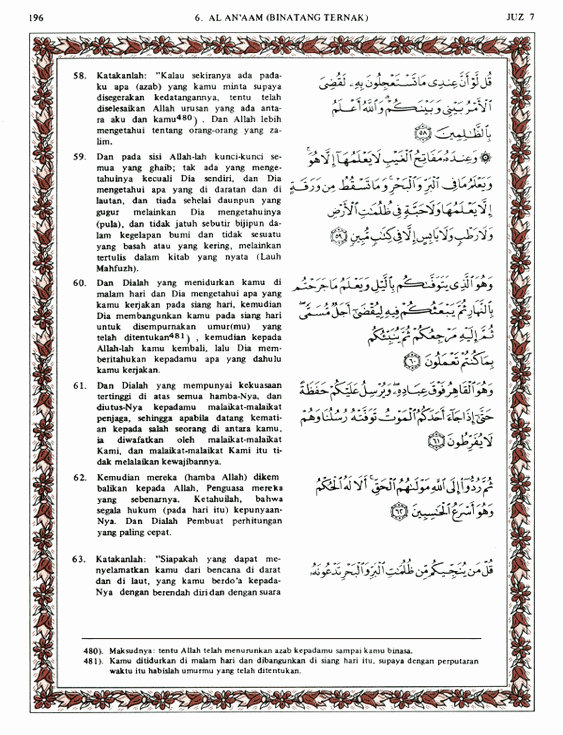 196
6. AL AN'AAM (BINATANG TERNAK)
JUZ 7
58. Katakanlah: "Kalau sekiranya ada pada-
ku apa (azab) yang kamu minta supaya
disegerakan kedatangannya, tentu telah
diselesaikan Allah urusan yang ada anta-
ra aku dan kamu480) . Dan Allah lebih
mengetahui tentang orang-orang yang za-
lim.
قُل لَّوْ أَنَّ عِندِى مَا تَسْتَعْجِلُونَ بِهِۦ لَقُضِىَ
ٱلْأَمْرُ بَيْنِى وَبَيْنَكُمْ ۗ وَٱللَّهُ أَعْلَمُ
بِٱلظَّـٰلِمِينَ ﴿٥٨﴾
59. Dan pada sisi Allah-lah kunci-kunci se-
mua yang ghaib; tak ada yang menge-
tahuinya kecuali Dia sendiri, dan Dia
mengetahui apa yang di daratan dan di
lautan, dan tiada sehelai daunpun yang
gugur melainkan Dia mengetahuinya
(pula), dan tidak jatuh sebutir bijipun da-
lam kegelapan bumi dan tidak sesuatu
yang basah atau yang kering, melainkan
tertulis dalam kitab yang nyata (Lauh
Mahfuzh).
۞ وَعِندَهُۥ مَفَاتِحُ ٱلْغَيْبِ لَا يَعْلَمُهَآ إِلَّا هُوَ ۚ
وَيَعْلَمُ مَا فِى ٱلْبَرِّ وَٱلْبَحْرِ ۚ وَمَا تَسْقُطُ مِن وَرَقَةٍ
إِلَّا يَعْلَمُهَا وَلَا حَبَّةٍ فِى ظُلُمَـٰتِ ٱلْأَرْضِ
وَلَا رَطْبٍ وَلَا يَابِسٍ إِلَّا فِى كِتَـٰبٍ مُّبِينٍ ﴿٥٩﴾
60. Dan Dialah yang menidurkan kamu di
malam hari dan Dia mengetahui apa yang
kamu kerjakan pada siang hari, kemudian
Dia membangunkan kamu pada siang hari
untuk disempurnakan umur(mu) yang
telah ditentukan481) , kemudian kepada
Allah-lah kamu kembali, lalu Dia mem-
beritahukan kepadamu apa yang dahulu
kamu kerjakan.
وَهُوَ ٱلَّذِى يَتَوَفَّىٰكُم بِٱلَّيْلِ وَيَعْلَمُ مَا جَرَحْتُم
بِٱلنَّهَارِ ثُمَّ يَبْعَثُكُمْ فِيهِ لِيُقْضَىٰٓ أَجَلٌ مُّسَمًّى ۖ
ثُمَّ إِلَيْهِ مَرْجِعُكُمْ ثُمَّ يُنَبِّئُكُم
بِمَا كُنتُمْ تَعْمَلُونَ ﴿٦٠﴾
61. Dan Dialah yang mempunyai kekuasaan
tertinggi di atas semua hamba-Nya, dan
diutus-Nya kepadamu malaikat-malaikat
penjaga, sehingga apabila datang kemati-
an kepada salah seorang di antara kamu,
ia diwafatkan oleh malaikat-malaikat
Kami, dan malaikat-malaikat Kami itu ti-
dak melalaikan kewajibannya.
وَهُوَ ٱلْقَاهِرُ فَوْقَ عِبَادِهِۦ ۖ وَيُرْسِلُ عَلَيْكُمْ حَفَظَةً
حَتَّىٰٓ إِذَا جَآءَ أَحَدَكُمُ ٱلْمَوْتُ تَوَفَّتْهُ رُسُلُنَا وَهُمْ
لَا يُفَرِّطُونَ ﴿٦١﴾
62. Kemudian mereka (hamba Allah) dikem
balikan kepada Allah, Penguasa mereka
yang sebenarnya. Ketahuilah, bahwa
segala hukum (pada hari itu) kepunyaan-
Nya. Dan Dialah Pembuat perhitungan
yang paling cepat.
ثُمَّ رُدُّوٓا۟ إِلَى ٱللَّهِ مَوْلَىٰهُمُ ٱلْحَقِّ ۚ أَلَا لَهُ ٱلْحُكْمُ
وَهُوَ أَسْرَعُ ٱلْحَـٰسِبِينَ ﴿٦٢﴾
63. Katakanlah: "Siapakah yang dapat me-
nyelamatkan kamu dari bencana di darat
dan di laut, yang kamu berdo'a kepada-
Nya dengan berendah diri dan dengan suara
قُلْ مَن يُنَجِّيكُم مِّن ظُلُمَـٰتِ ٱلْبَرِّ وَٱلْبَحْرِ تَدْعُونَهُۥ
480). Maksudnya: tentu Allah telah menurunkan azab kepadamu sampai kamu binasa.
481). Kamu ditidurkan di malam hari dan dibangunkan di siang hari itu, supaya dengan perputaran
waktu itu habislah umurmu yang telah ditentukan.